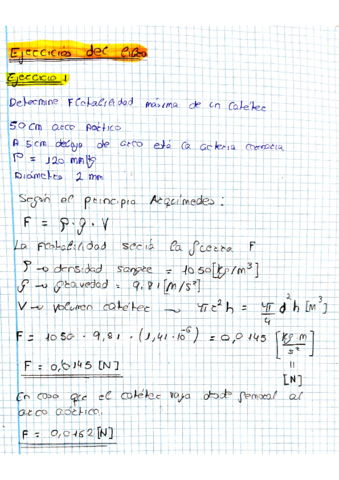 Ejercicios del libro
Ejercicio 1
Determine Flotabilidad máxima de un catéter
50 cm arco aórtico
A 5cm debajo de arco está la arteria coronaria
P = 120 mmHg
Diámetro 2 mm
Según el principio Arquímedes:
F = ρ · g · V
La flotabilidad sería la fuerza F
ρ → densidad sangre = 1050 [kg/m³]
g → gravedad = 9,81 [m/s²]
V → volumen catéter → πr²h = π/4 d²h [m³]
F = 1050 · 9,81 · (1,41·10⁻⁶) = 0,0145 [kg m / s²]
= [N]
F = 0,0145 [N]
En caso que el catéter vaya desde femoral al
arco aórtico.
F = 0,0162 [N]